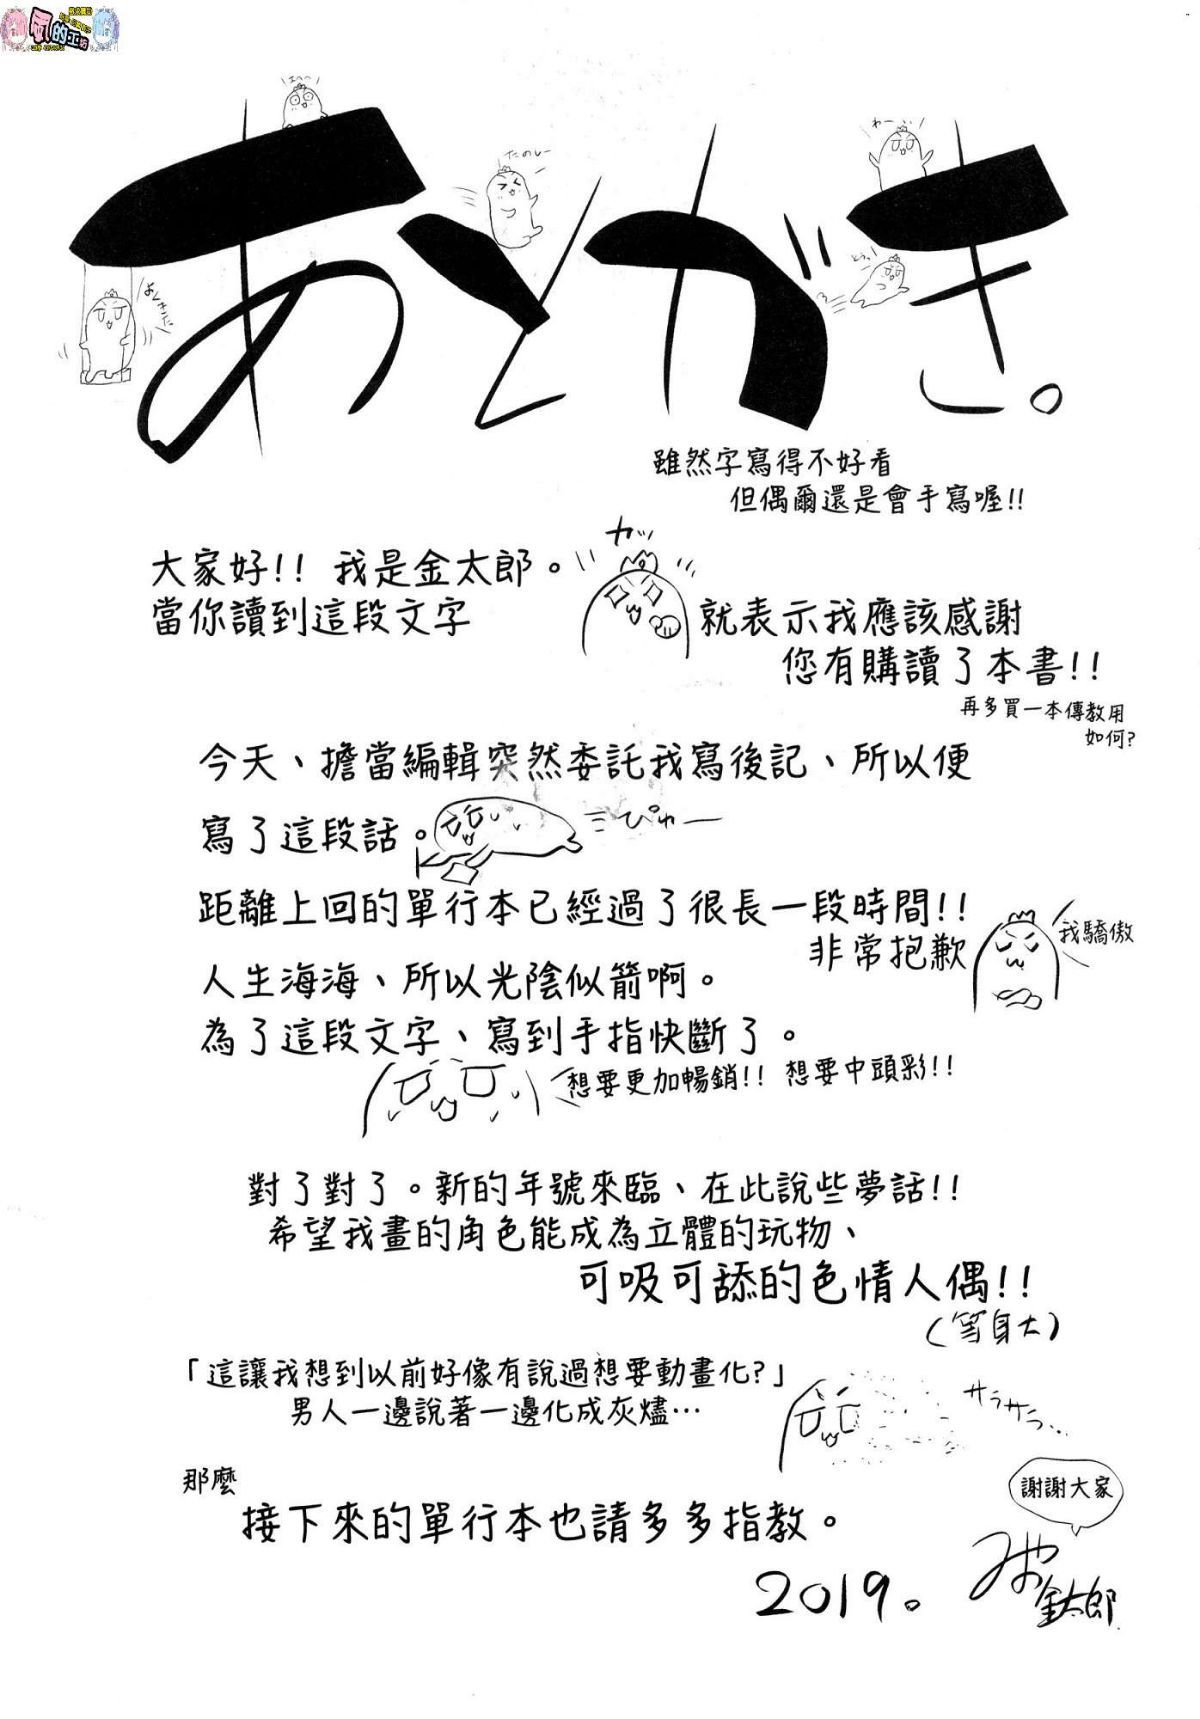 風的工坊
あとがき。
たのしー
わーふぃ
雖然字寫得不好看
但偶爾還是會手寫喔!!
カッ
大家好!! 我是金太郎。
當你讀到這段文字
就表示我應該感謝
您有購讀了本書!!
再多買一本傳教用
如何?
今天、擔當編輯突然委託我寫後記、所以便
寫了這段話。
ぴゅー
距離上回的單行本已經過了很長一段時間!!
非常抱歉
我驕傲
人生海海、所以光陰似箭啊。
為了這段文字、寫到手指快斷了。
想要更加暢銷!! 想要中頭彩!!
對了對了。新的年號來臨、在此說些夢話!!
希望我畫的角色能成為立體的玩物、
可吸可舔的色情人偶!!
(等身大)
「這讓我想到以前好像有說過想要動畫化?」
男人一邊說著一邊化成灰燼…
サラサラ…
那麼
接下來的單行本也請多多指教。
謝謝大家
2019。
金太郎